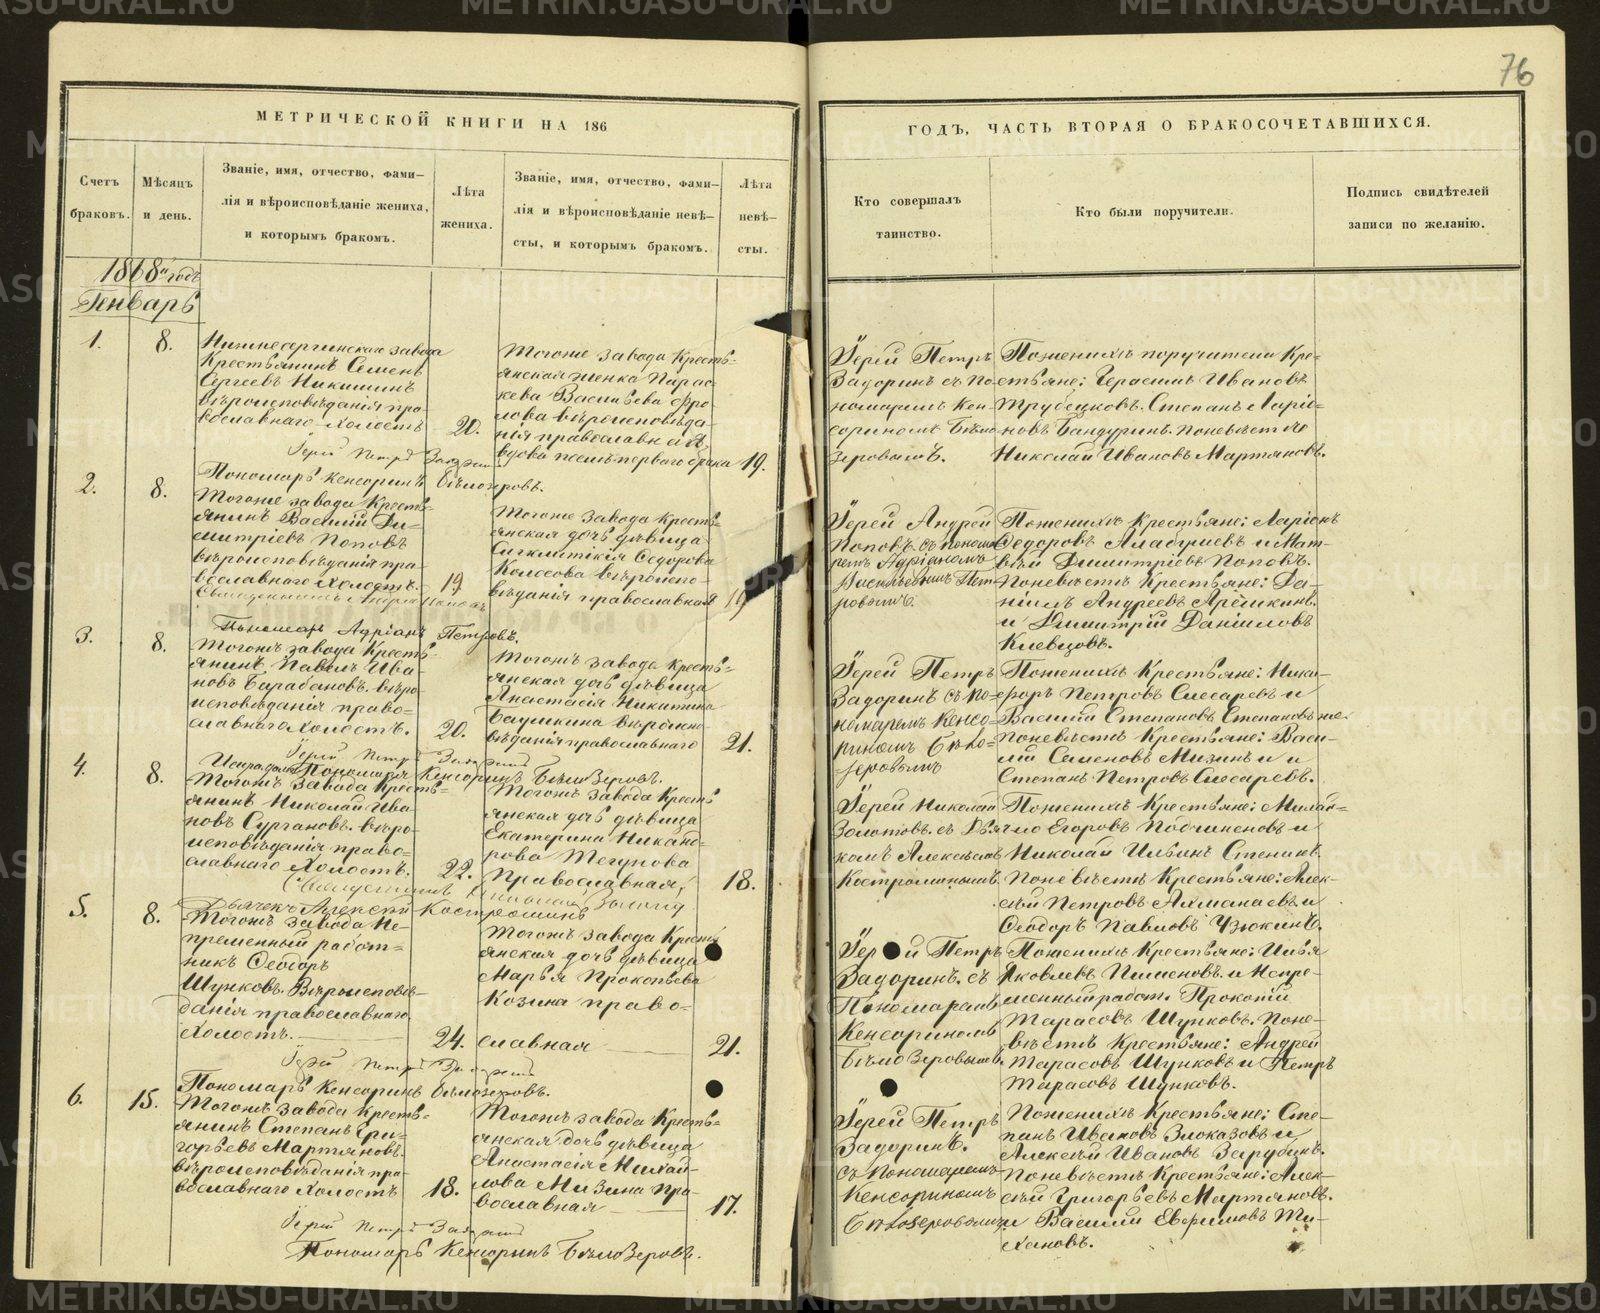 76
МЕТРИЧЕСКОЙ КНИГИ НА 186
ГОДЪ, ЧАСТЬ ВТОРАЯ О БРАКОСОЧЕТАВШИХСЯ.
Счетъ
браковъ.
Мѣсяцъ
и день.
Званіе, имя, отчество, фами-
лія и вѣроисповѣданіе жениха,
и которымъ бракомъ.
Лѣта
жениха.
Званіе, имя, отчество, фами-
лія и вѣроисповѣданіе невѣ-
сты, и которымъ бракомъ.
Лѣта
невѣ-
сты.
Кто совершалъ
таинство.
Кто были поручители.
Подпись свидѣтелей
записи по желанію.
1868й годъ
Генварь
1.
8.
Нижнесергинскаго завода
Крестьянинъ Семенъ
Сергеевъ Никишинъ
вѣроисповѣданія пра-
вославнаго Холостъ
20.
Тогоже завода Кресть-
янская женка Парас-
кева Васильева Фро-
лова вѣроисповѣда-
нія православная,
вдова послѣ перваго брака
19.
Іерей Петръ
Задоринъ съ По-
номаремъ Кен-
сориномъ Бѣло
зеровымъ.
Поженихѣ поручители Кре-
стьяне: Герасимъ Ивановъ
Трубецковъ. Степанъ Ларіо-
новъ Бандуринъ. поневѣстѣ
Николай Ивановъ Мартяновъ.
Іерей Петръ Задоринъ
Пономарь Кенсоринъ Бѣлозеровъ.
2.
8.
Тогоже завода Кресть-
янинъ Василій Ди-
митріевъ Поповъ
вѣроисповѣданія пра-
вославнаго Холостъ.
19.
Тогоже завода Кресть-
янская дочь дѣвица
Сигклитикія Ѳедорова
Колосова вѣроиспо-
вѣданія православная
19
Іерей Андрей
Поповъ съ понома
ремъ Адріаномъ
Васильевымъ Пет-
ровымъ.
Поженихѣ Крестьяне: Ларіонъ
Ѳедоровъ Алабушевъ и Мат-
вѣй Димитріевъ Поповъ.
Поневѣстѣ Крестьяне: Да-
ніилъ Андреевъ Арешкинъ.
и Димитрій Даниловъ
Киевцовъ.
Священникъ Андрей Поповъ
Пономарь Адріанъ Петровъ.
3.
8.
Тогожъ завода Кресть-
янинъ Павелъ Ива-
новъ Барабановъ. вѣро
исповѣданія право-
славнаго холостъ.
20.
Тогожъ завода Кресть-
янская дочь дѣвица
Анастасія Никитина
Башкина вѣроиспо-
вѣданія православнаго
21.
Іерей Петръ
Задоринъ съ По-
номаремъ Кенсо-
риномъ Бѣло-
зеровымъ
Поженихѣ Крестьяне: Ники-
форъ Петровъ Слесаревъ и
Василій Степановъ Степановъ же
Поневѣстѣ Крестьяне: Васи-
лій Семеновъ Мизинъ и
Степанъ Петровъ Слесаревъ.
Іерей Петръ Задоринъ
Пономарь Кенсоринъ Бѣлозеровъ.
4.
8.
Тогожъ завода Кресть-
янинъ Николай Ива
новъ Сургановъ. вѣро-
исповѣданія право-
славнаго Холостъ.
22.
Тогожъ завода Кресть
янская дочь дѣвица
Екатерина Никанд-
рова Тегунова
Православная,
18.
Іерей Николай
Золотовъ. съ Дья
комъ Алексѣемъ
Костроминымъ.
Поженихѣ Крестьяне: Михай-
ло Егоровъ Подчиненовъ и
Николай Ильинъ Стенинъ.
Поневѣстѣ Крестьяне: Алек-
сѣй Петровъ Ахманаевъ и
Ѳеодоръ Павловъ Чзюкинъ.
Священникъ Николай Золотовъ
Дьячекъ Алексѣй Костроминъ
5.
8.
Тогожъ завода Не-
пременный работ-
никъ Ѳеодоръ
Шунковъ. Вѣроисповѣ-
данія православнаго.
Холостъ.
24.
Тогожъ завода Кресть
янская дочь дѣвица
Марья Прокопьева
Козина право-
славная
21.
Іерей Петръ
Задоринъ. съ
Пономаремъ
Кенсориномъ
Бѣлозеровымъ.
Поженихѣ Крестьяне: Илья
Яковлевъ Пименовъ. и Непре-
менный работ. Прокопій
Тарасовъ Шунковъ. Поне-
вѣстѣ Крестьяне: Андрей
Тарасовъ Шунковъ и Петръ
Тарасовъ Шунковъ.
Іерей Петръ Задоринъ
Пономарь Кенсоринъ Бѣлозеровъ.
6.
15.
Тогожъ завода Кресть-
янинъ Степанъ Гри-
горьевъ Мартяновъ.
вѣроисповѣданія пра-
вославнаго Холостъ
18.
Тогожъ завода Кресть-
янская дочь дѣвица
Анастасія Михай-
лова Мизина пра-
вославная
17.
Іерей Петръ
Задоринъ.
съ Пономаремъ
Кенсориномъ
Бѣлозеровымъ
Поженихѣ Крестьяне: Сте-
панъ Ивановъ Злоказовъ и
Алексѣй Ивановъ Зарубинъ.
Поневѣстѣ Крестьяне: Алек-
сѣй Григорьевъ Мартяновъ.
и Василій Евфимовъ Ти-
хановъ.
Іерей Петръ Задоринъ
Пономарь Кенсоринъ Бѣлозеровъ.
METRIKI.GASO-URAL.RU